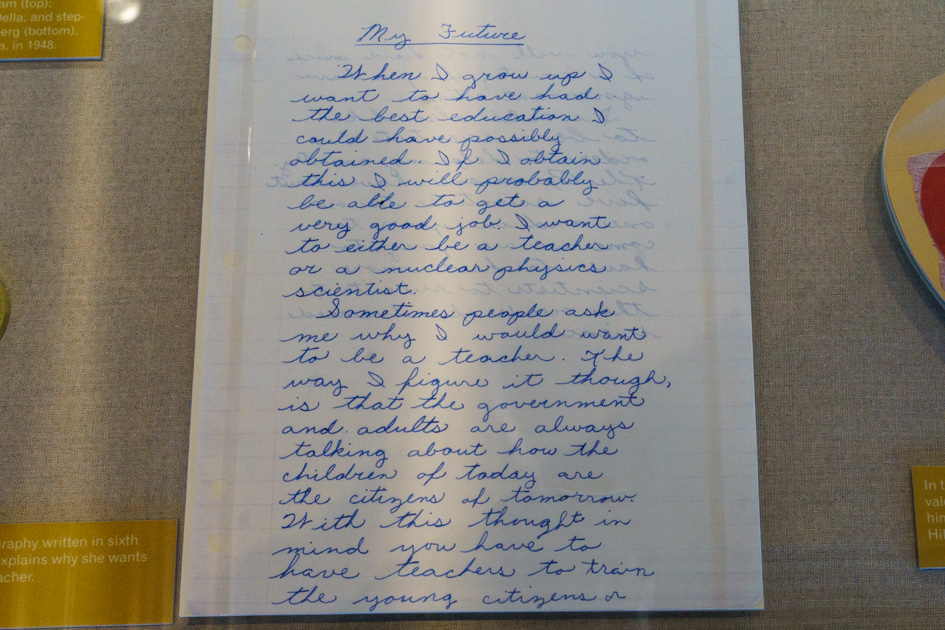 am (top);
ella; and step-
erg (bottom),
a, in 1948.
My Future
When I grow up I
want to have had
the best education I
could have possibly
obtained. If I obtain
this I will probably
be able to get a
very good job. I want
to either be a teacher
or a nuclear physics
scientist.
Sometimes people ask
me why I would want
to be a teacher. The
way I figure it though,
is that the government
and adults are always
talking about how the
children of today are
the citizens of tomorrow.
With this thought in
mind you have to
have teachers to train
the young citizens or
raphy written in sixth
xplains why she wants
acher.
In t
valu
him
Hil